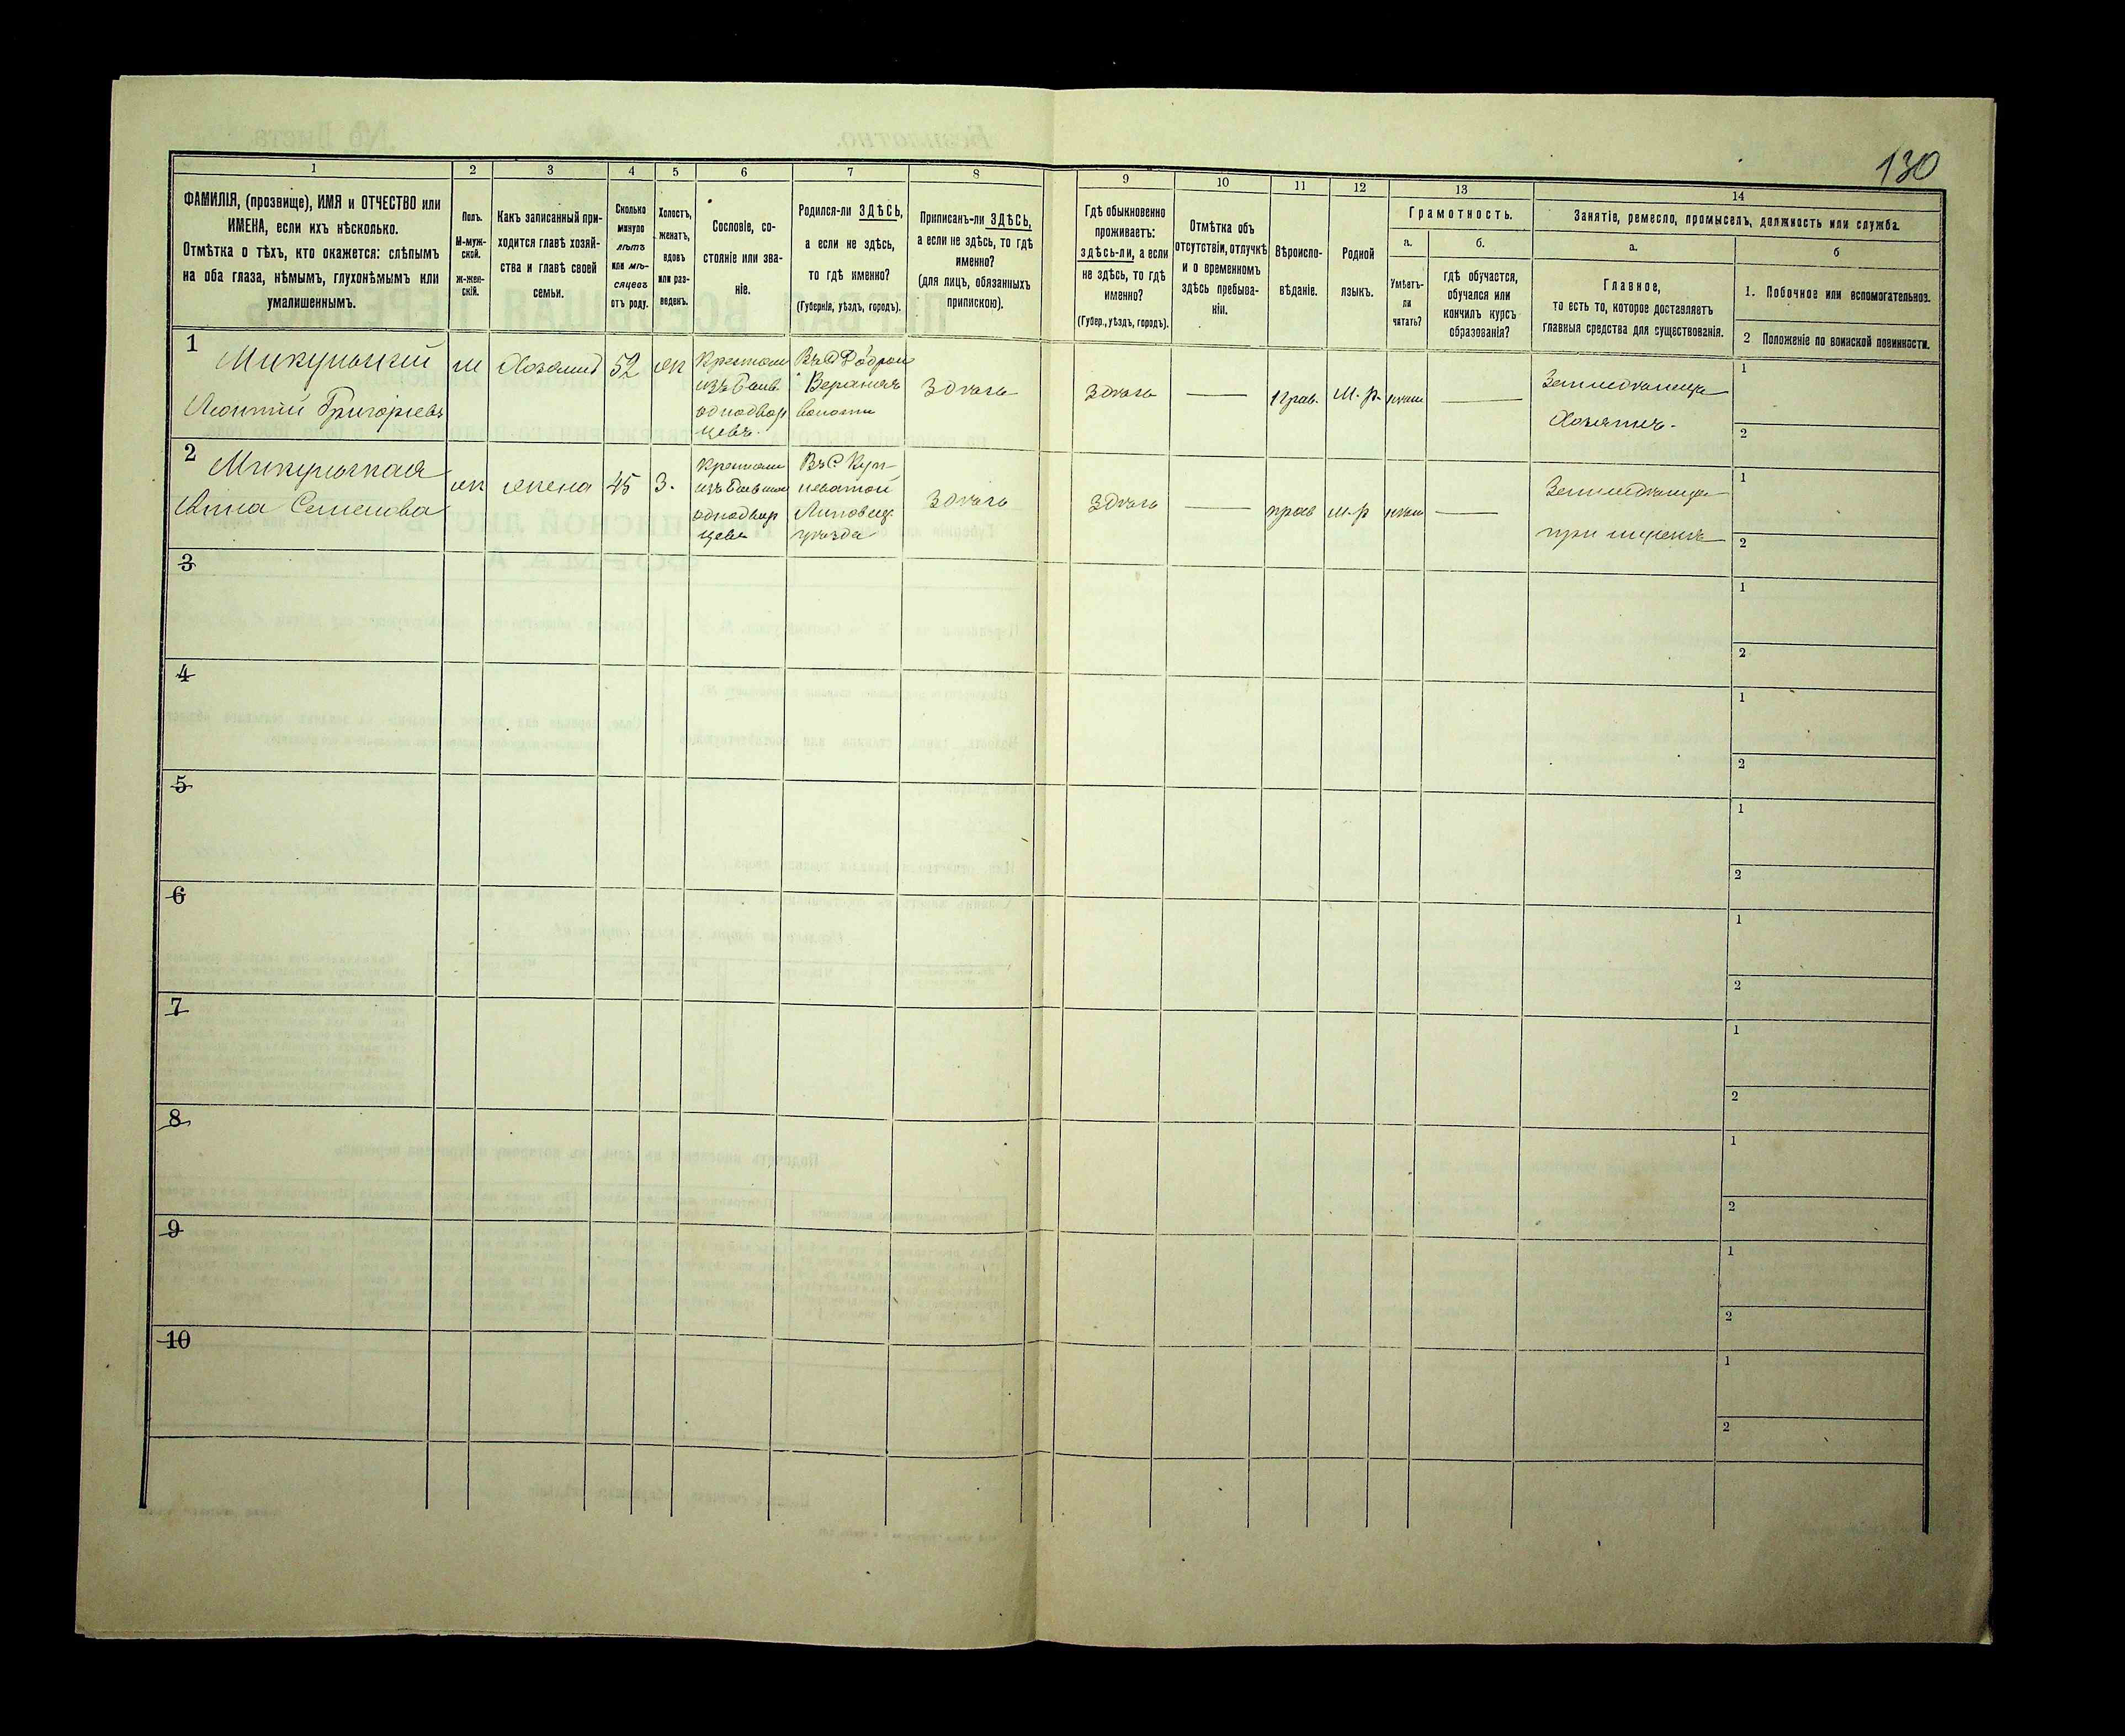 130
1
2
3
4
5
6
7
8
9
10
11
12
13
14
ФАМИЛІЯ, (прозвище), ИМЯ и ОТЧЕСТВО или
ИМЕНА, если ихъ нѣсколько.
Отмѣтка о тѣхъ, кто окажется: слѣпымъ
на оба глаза, нѣмымъ, глухонѣмымъ или
умалишеннымъ.
Полъ.
М-муж-
ской.
ж-жен-
скій.
Какъ записанный при-
ходится главѣ хозяй-
ства и главѣ своей
семьи.
Сколько
минуло
лѣтъ
или мѣ-
сяцевъ
отъ роду.
Холостъ,
женатъ,
вдовъ
или раз-
веденъ.
Сословіе, со-
стояніе или зва-
ніе.
Родился-ли ЗДѢСЬ,
а если не здѣсь,
то гдѣ именно?
(Губернія, уѣздъ, городъ).
Приписанъ-ли ЗДѢСЬ,
а если не здѣсь, то гдѣ
именно?
(для лицъ, обязанныхъ
припискою).
Гдѣ обыкновенно
проживаетъ:
здѣсь-ли, а если
не здѣсь, то гдѣ
именно?
(Губер., уѣздъ, городъ).
Отмѣтка объ
отсутствіи, отлучкѣ
и о временномъ
здѣсь пребыва-
ніи.
Вѣроиспо-
вѣданіе.
Родной
языкъ.
Грамотность.
а.
Умѣетъ-
ли
читать?
б.
гдѣ обучается,
обучался или
кончилъ курсъ
образованія?
Занятіе, ремесло, промыселъ, должность или служба.
а.
Главное,
то есть то, которое доставляетъ
главныя средства для существованія.
б
1. Побочное или вспомогательное.
2 Положеніе по воинской повинности.
1
Микульскій
Леонтій Григорьевъ
м
Хозяинъ
52
ж
Крестьян
изъ бывш.
однодвор
цевъ.
волости
Здѣсь
Здѣсь
Прав.
М. р.
Земледѣлецъ
Хозяинъ.
1
2
2
Микульская
Анна Семенова
ж
жена
45
З.
Крестьян
изъ бывших
однодвор
цевъ
Въ С. Куп-
неватой
Липовец.
уѣзда
Здѣсь
Здѣсь
прав
м. р
Земледѣлица
при мужѣ
1
2
3
1
2
4
1
2
5
1
2
6
1
2
7
1
2
8
1
2
9
1
2
10
1
2